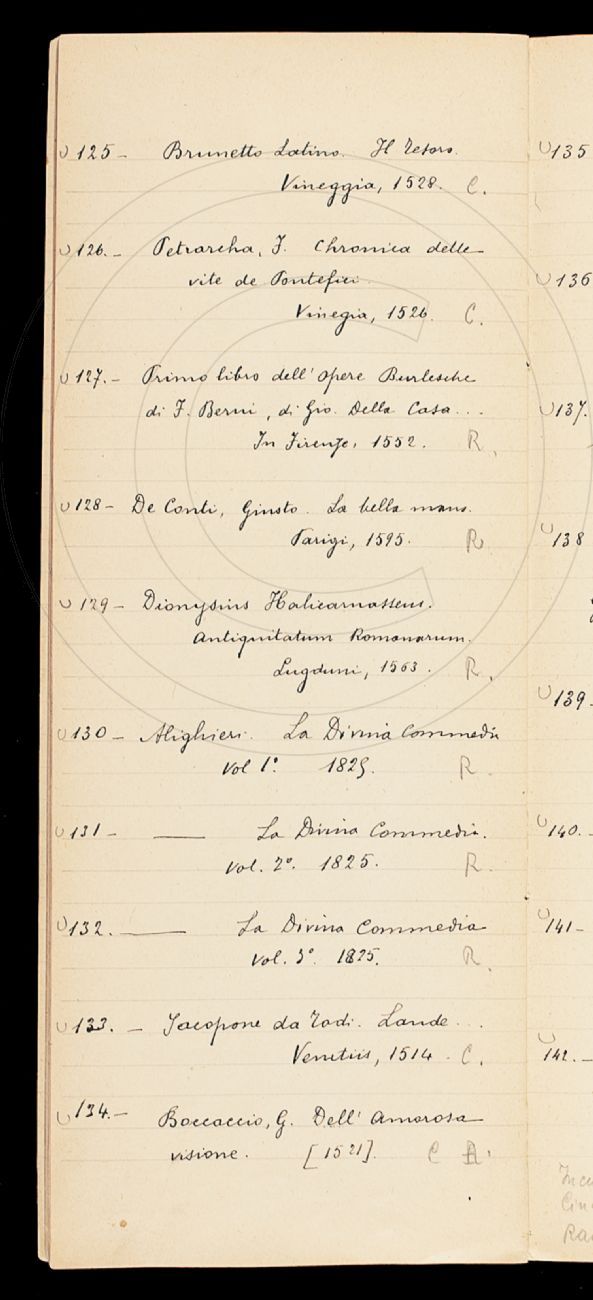 125 - Brunetto Latino. Il Tesoro.
Vineggia, 1528. C.
126. - Petrarcha, F. Chronica delle
vite de Pontefici
Vinegia, 1526. C.
127. - Primo libro dell' opere Burlesche
di F. Berni, di Gio. Della Casa ...
In Firenze, 1552. R.
128 - De Conti, Giusto. La bella mano.
Parigi, 1595. R
129 - Dionysius Halicarnasseus.
Antiquitatum Romanorum.
Lugduni, 1563. R.
130 - Alighieri. La Divina Commedia
Vol 1º. 1825. R.
131 - —— La Divina Commedia.
Vol. 2º. 1825. R.
132. —— La Divina Commedia
Vol. 3º. 1825. R.
133. - Jacopone da Todi. Laude ...
Venetiis, 1514. C.
134. - Boccaccio, G. Dell' Amorosa
visione. [1521]. C R.
135
136
137.
138
139.
140. -
141 -
142. -